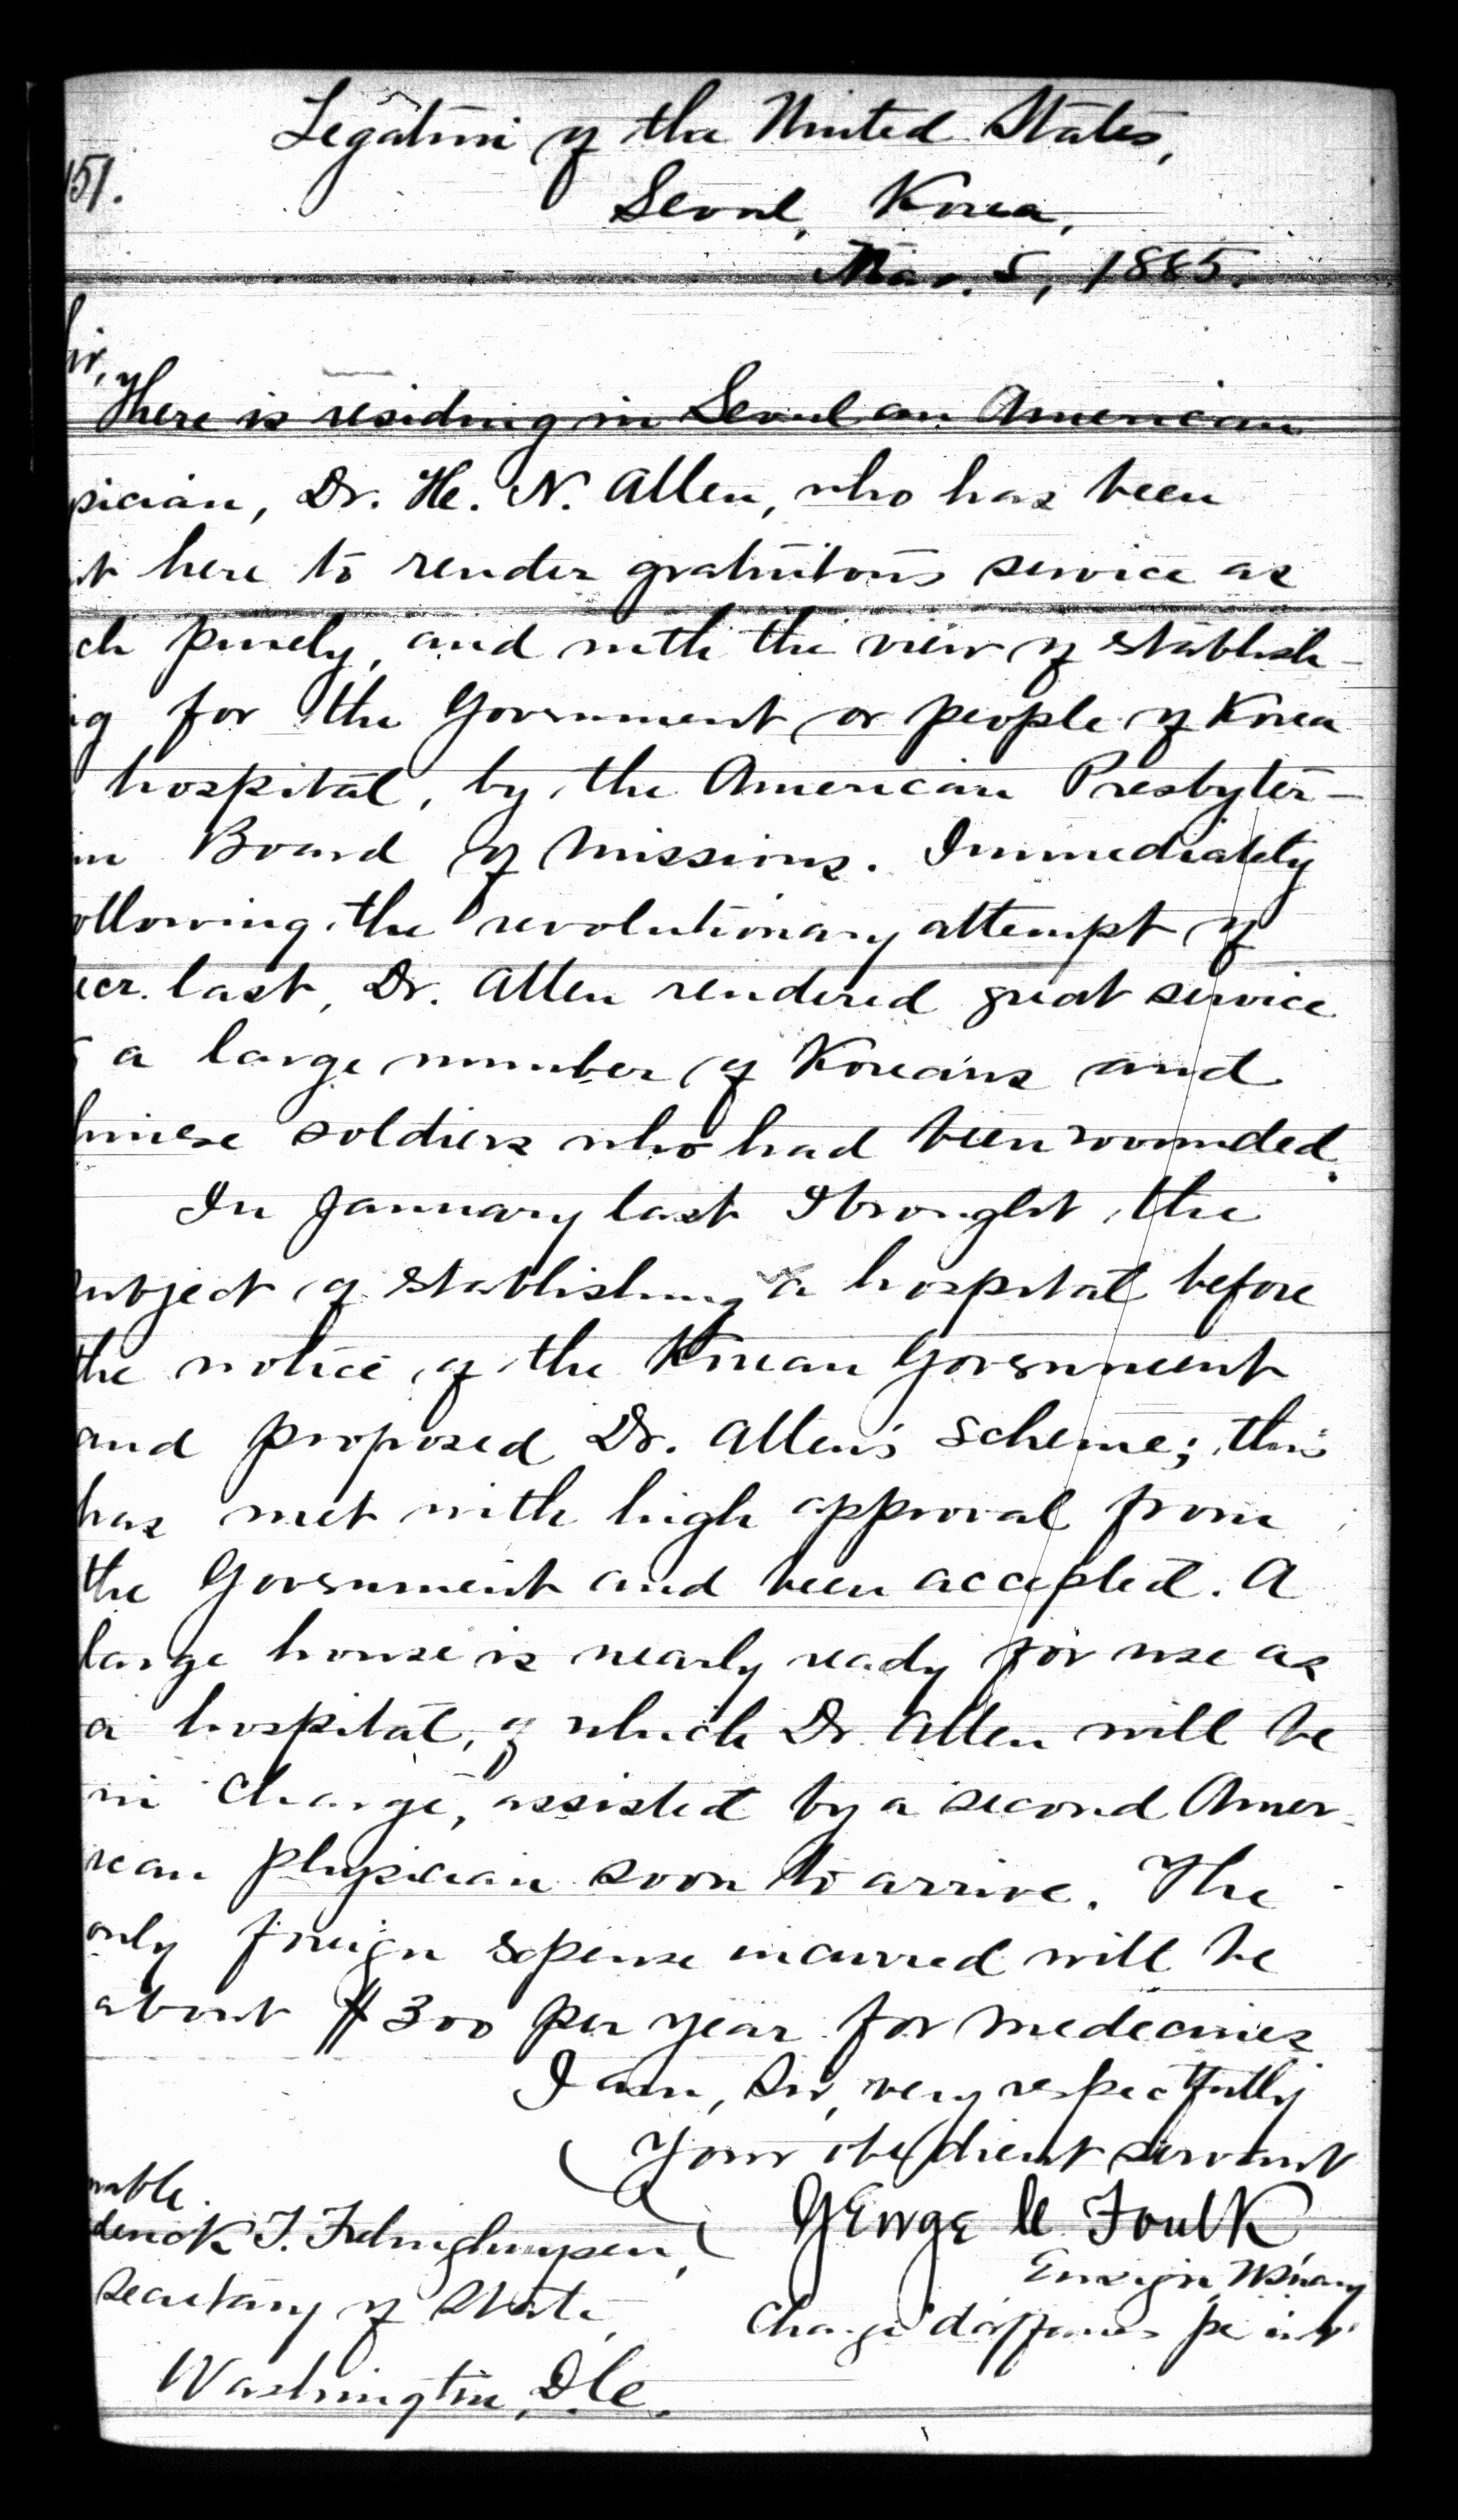 Legation of the United States,
151.
Seoul, Korea,
Mar. 5, 1885.
ir,
There is residing in Seoul an American
sician, Dr. H. N. Allen, who has been
nt here to render gratuitous service as
ch purely, and with the view of establish-
ng for the Government or people of Korea
hospital, by the American Presbyter-
an Board of Missions. Immediately
ollowing the revolutionary attempt of
ecr. last, Dr. Allen rendered great service
a large number of Koreans and
hinese soldiers who had been wounded.
In January last I brought the
subject of establishing a hospital before
the notice of the Korean Government
and proposed Dr. Allen's scheme; this
has met with high approval from
the Government and been accepted. A
large house is nearly ready for use as
a hospital, of which Dr. Allen will be
in charge, assisted by a second Amer-
ican physician soon to arrive. The
only foreign expense incurred will be
about $300 per year for medecines
I am, Sir, very respectfully
Your obedient servant
George C Foulk
Ensign, U.S. Navy
Chargé d'affaires
rable
derick T. Frelinghuysen,
Secretary of State,
Washington, D.C.